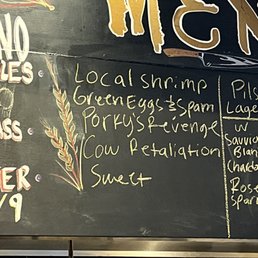 MEN
NO
LES
ASS
ER
/9
Local shrimp
Green Eggs & Spam
Porky's Revenge
Cow Retaliation
Sweet
Pils
Lage
W
Sauvi
Blan
Chard
Rose
Spar